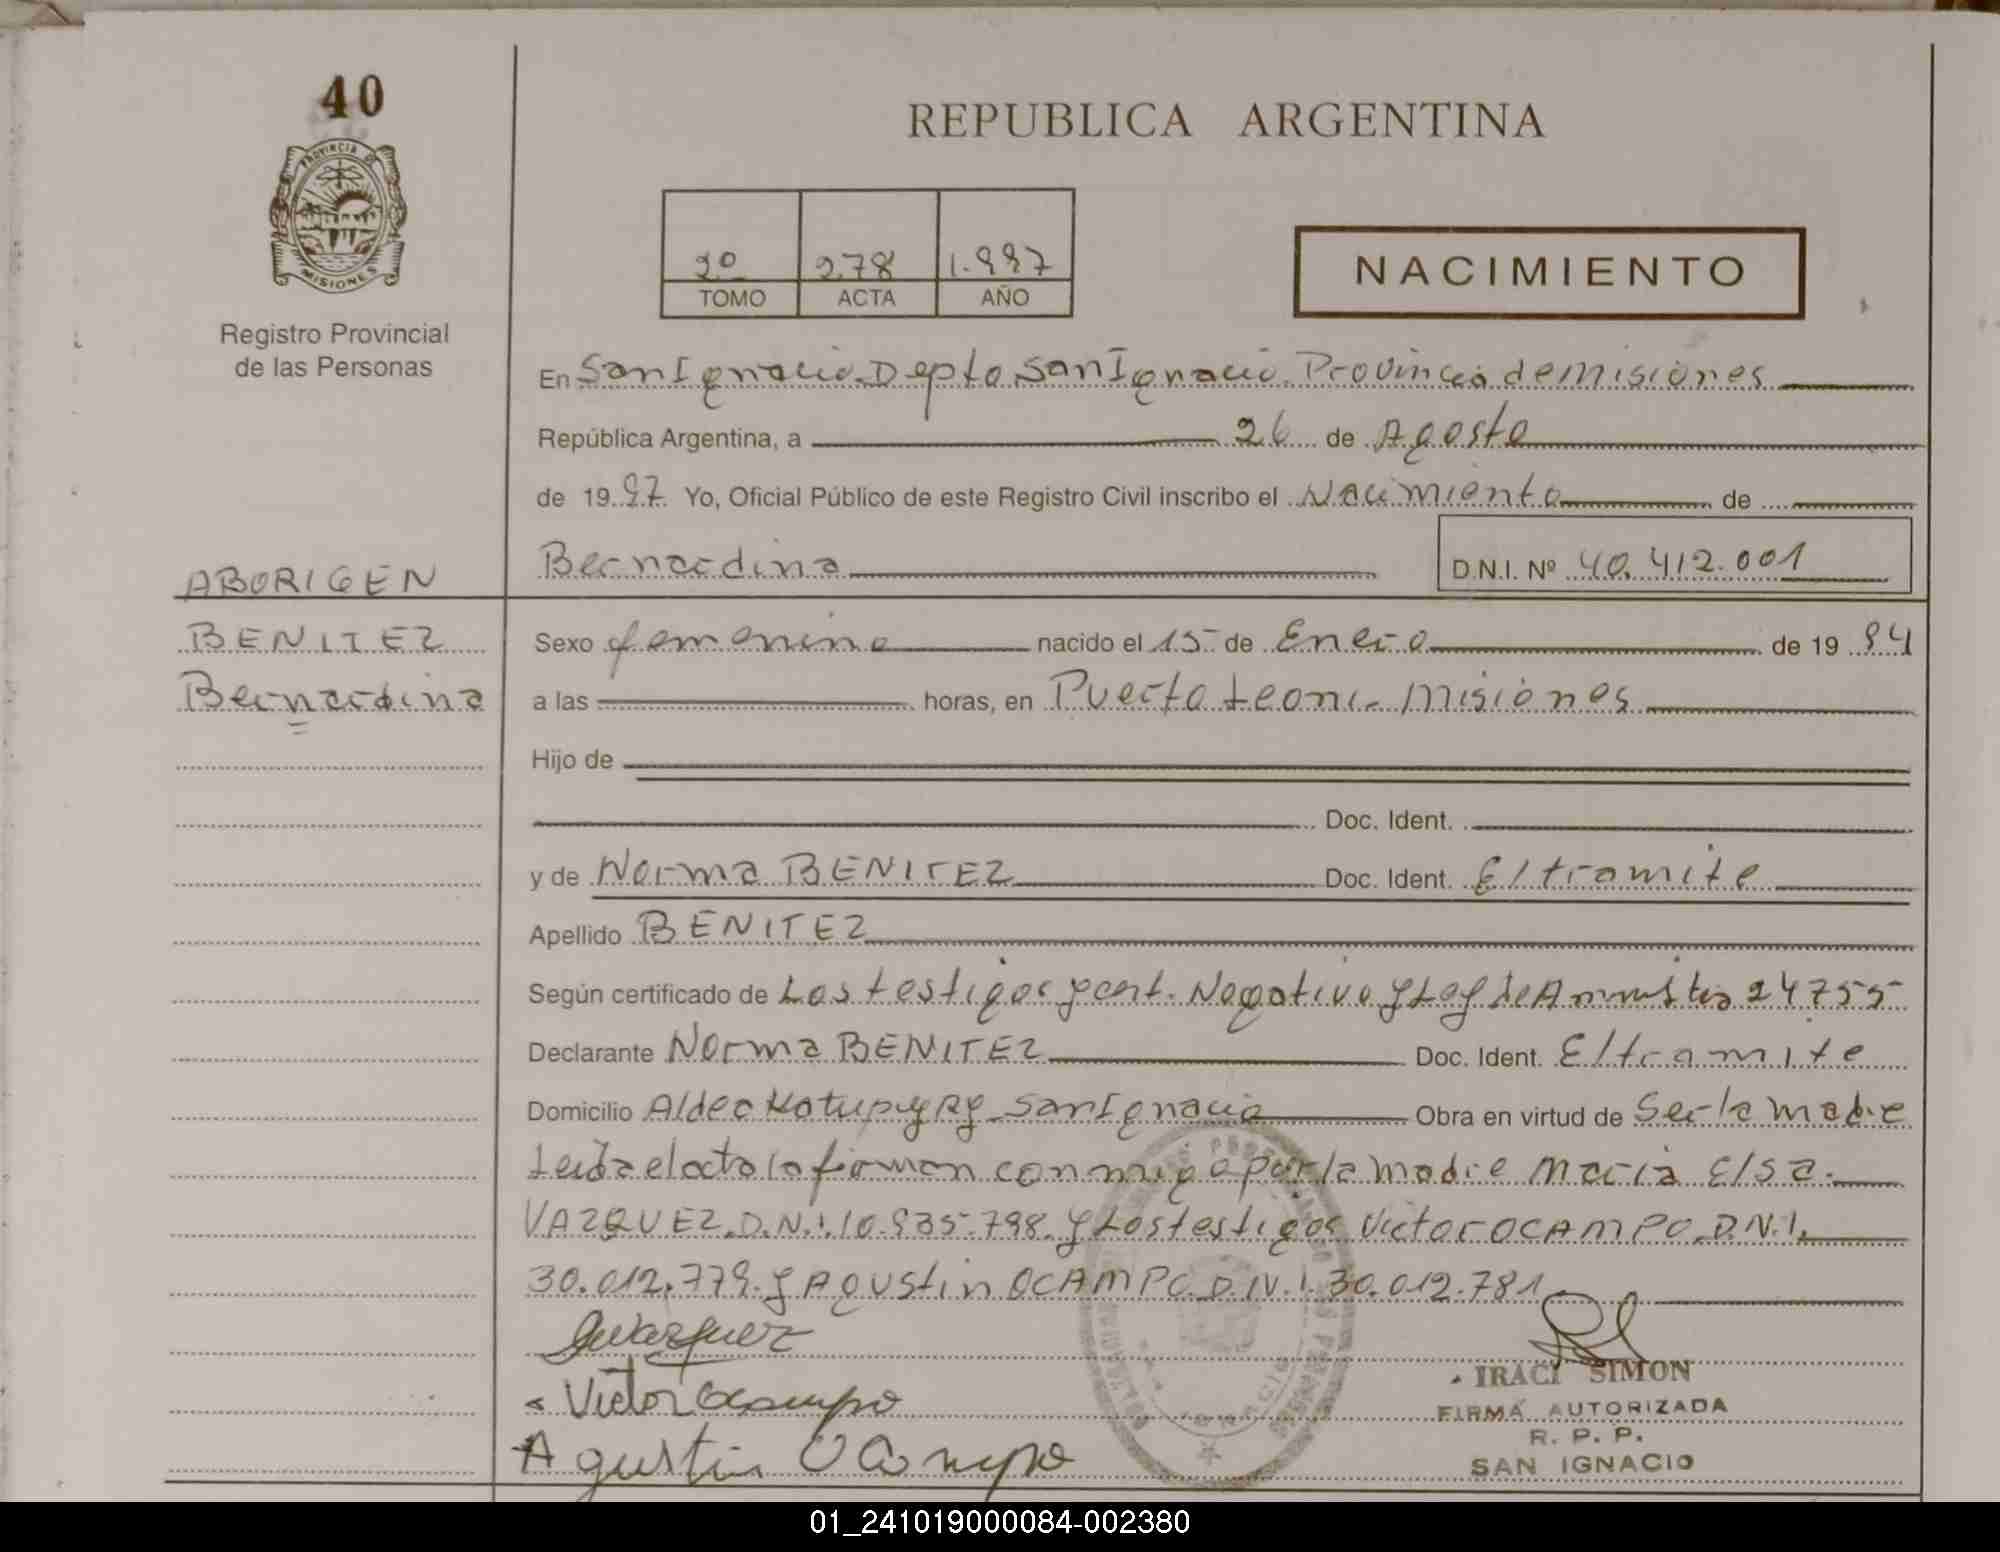 40
REPUBLICA ARGENTINA
PROVINCIA DE
MISIONES
2º 278 1.997
TOMO ACTA AÑO
NACIMIENTO
Registro Provincial
de las Personas
En San Ignacio. Depto San Ignacio. Provincia de Misiones
República Argentina, a 26 de Agosto
de 19 97 Yo, Oficial Público de este Registro Civil inscribo el Nacimiento de
Bernardina D.N.I. Nº 40.412.001
ABORIGEN
BENITEZ
Bernardina
Sexo femenino nacido el 15 de Enero de 19 94
a las horas, en Puerto Leoni - Misiones
Hijo de
Doc. Ident.
y de Norma BENITEZ Doc. Ident. E/tramite
Apellido BENITEZ
Según certificado de Los testigos y cert. Negativo y Ley de Amnistia 24755
Declarante Norma BENITEZ Doc. Ident. E/tramite
Domicilio Aldea Katupyry - San Ignacio Obra en virtud de Ser la madre
Leida el acta la firman conmigo por la madre Maria Elsa
VAZQUEZ. D.N.I. 10.935.798. y Los testigos Victor OCAMPO. D.N.I.
30.012.779. y Agustin OCAMPO D.N.I. 30.012.781
Vazquez
Victor Ocampo
Agustin Ocampo
IRACI SIMON
FIRMA AUTORIZADA
R. P. P.
SAN IGNACIO
01_241019000084-002380